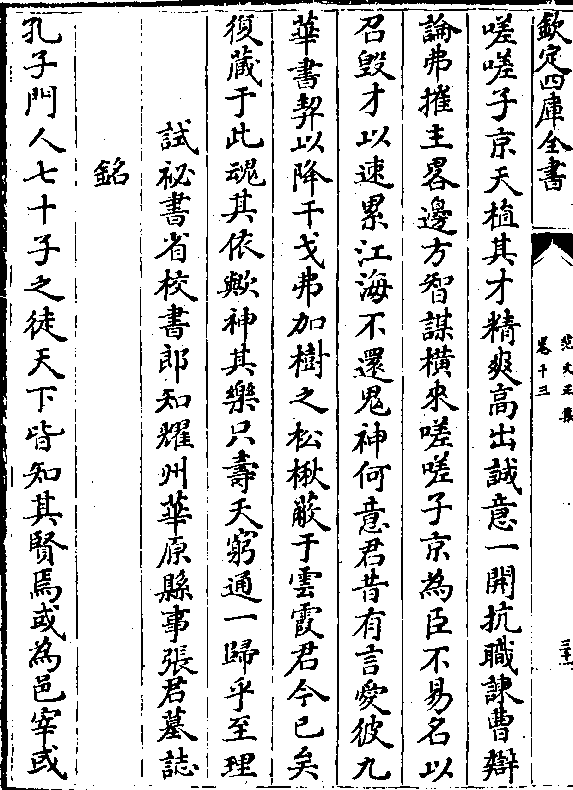 欽定四庫全書
范文正集
卷十三
三十
嗟嗟子京天植其才精爽高出誠意一開抗職諫曹辯
論弗摧主畧邊方智謀橫來嗟嗟子京為臣不易名以
召毀才以速累江海不還鬼神何意君昔有言愛彼九
華書契以降干戈弗加樹之松楸蔽于雲霞君今已矣
復藏于此魂其依歟神其樂只壽夭窮通一歸乎至理
試祕書省校書郎知耀州華原縣事張君墓誌
銘
孔子門人七十子之徒天下皆知其賢焉或為邑宰或